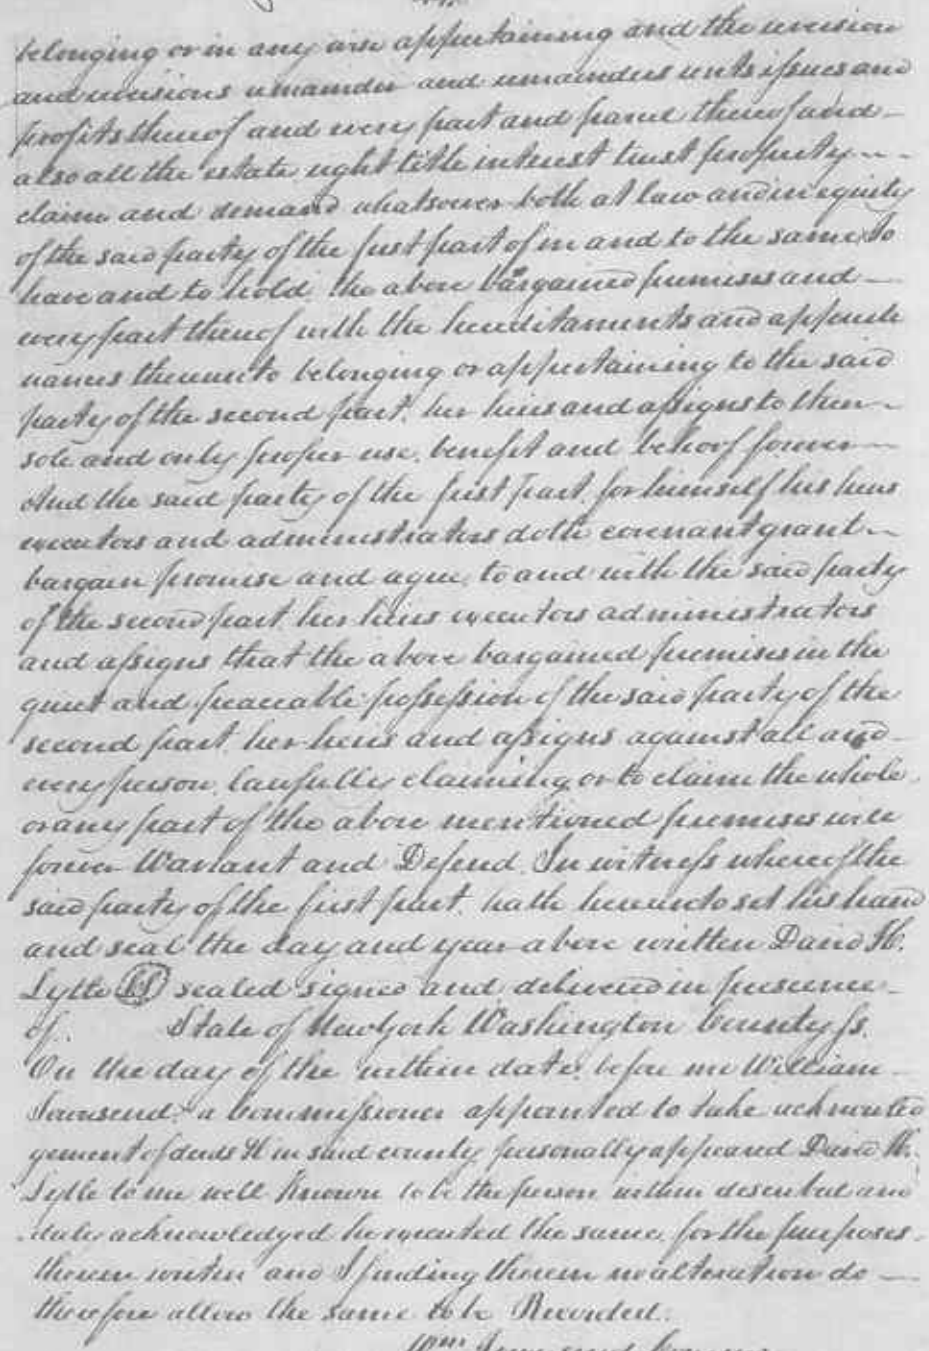 belonging or in any wise appertaining and the revision
and revisions remainder and remainders rents issues and
profits thereof and every part and parcel thereof and
also all the estate right title interest trust property
claim and demand whatsoever both at law and in equity
of the said party of the first part of in and to the same to
have and to hold the above bargained premises and
every part thereof with the hereditaments and appurte
nances thereunto belonging or appertaining to the said
party of the second part, her heirs and assigns to their
sole and only proper use, benefit and behoof forever
And the said party of the first part for himself his heirs
executors and administrators doth covenant grant
bargain promise and agree, to and with the said party
of the second part her heirs executors administrators
and assigns that the above bargained premises in the
quiet and peaceable possession of the said party of the
second part, her heirs and assigns against all and
every person, lawfully claiming or to claim the whole
or any part of the above mentioned premises will
forever Warrant and Defend. In witness whereof the
said party of the first part, hath hereunto set his hand
and seal the day and year above written David H.
Lytle LS sealed signed and delivered in presence
of. State of New York Washington County ss.
On the day of the within date, before me William
Townsend, a Commissioner appointed to take acknowled
gement of deeds &c in said county personally appeared David H.
Lytle to me well Known to be the person within described and
duly acknowledged he executed the same, for the purposes
therein written and I finding therein no alteration do
therefore allow the same to be Recorded.
Wm Townsend